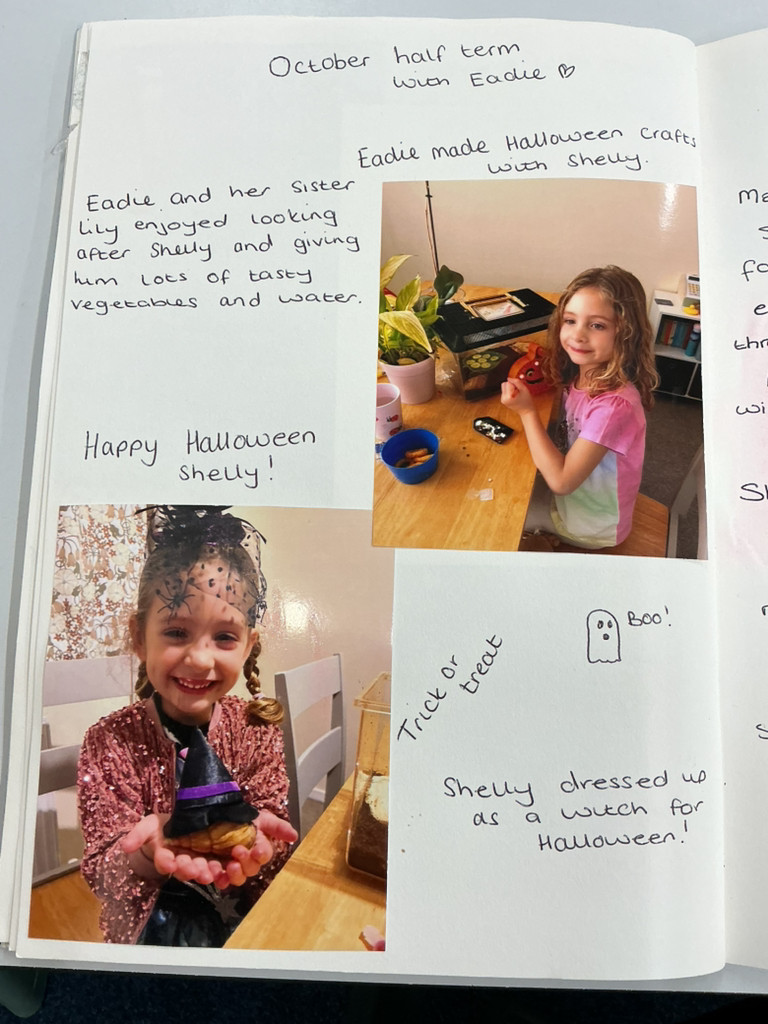 October half term
with Eadie ♡
Eadie made Halloween Crafts
with Shelly.
Eadie and her sister
Lily enjoyed looking
after Shelly and giving
him lots of tasty
vegetables and water.
Happy Halloween
Shelly!
BOO!
Trick or
treat
Shelly dressed up
as a witch for
Halloween!